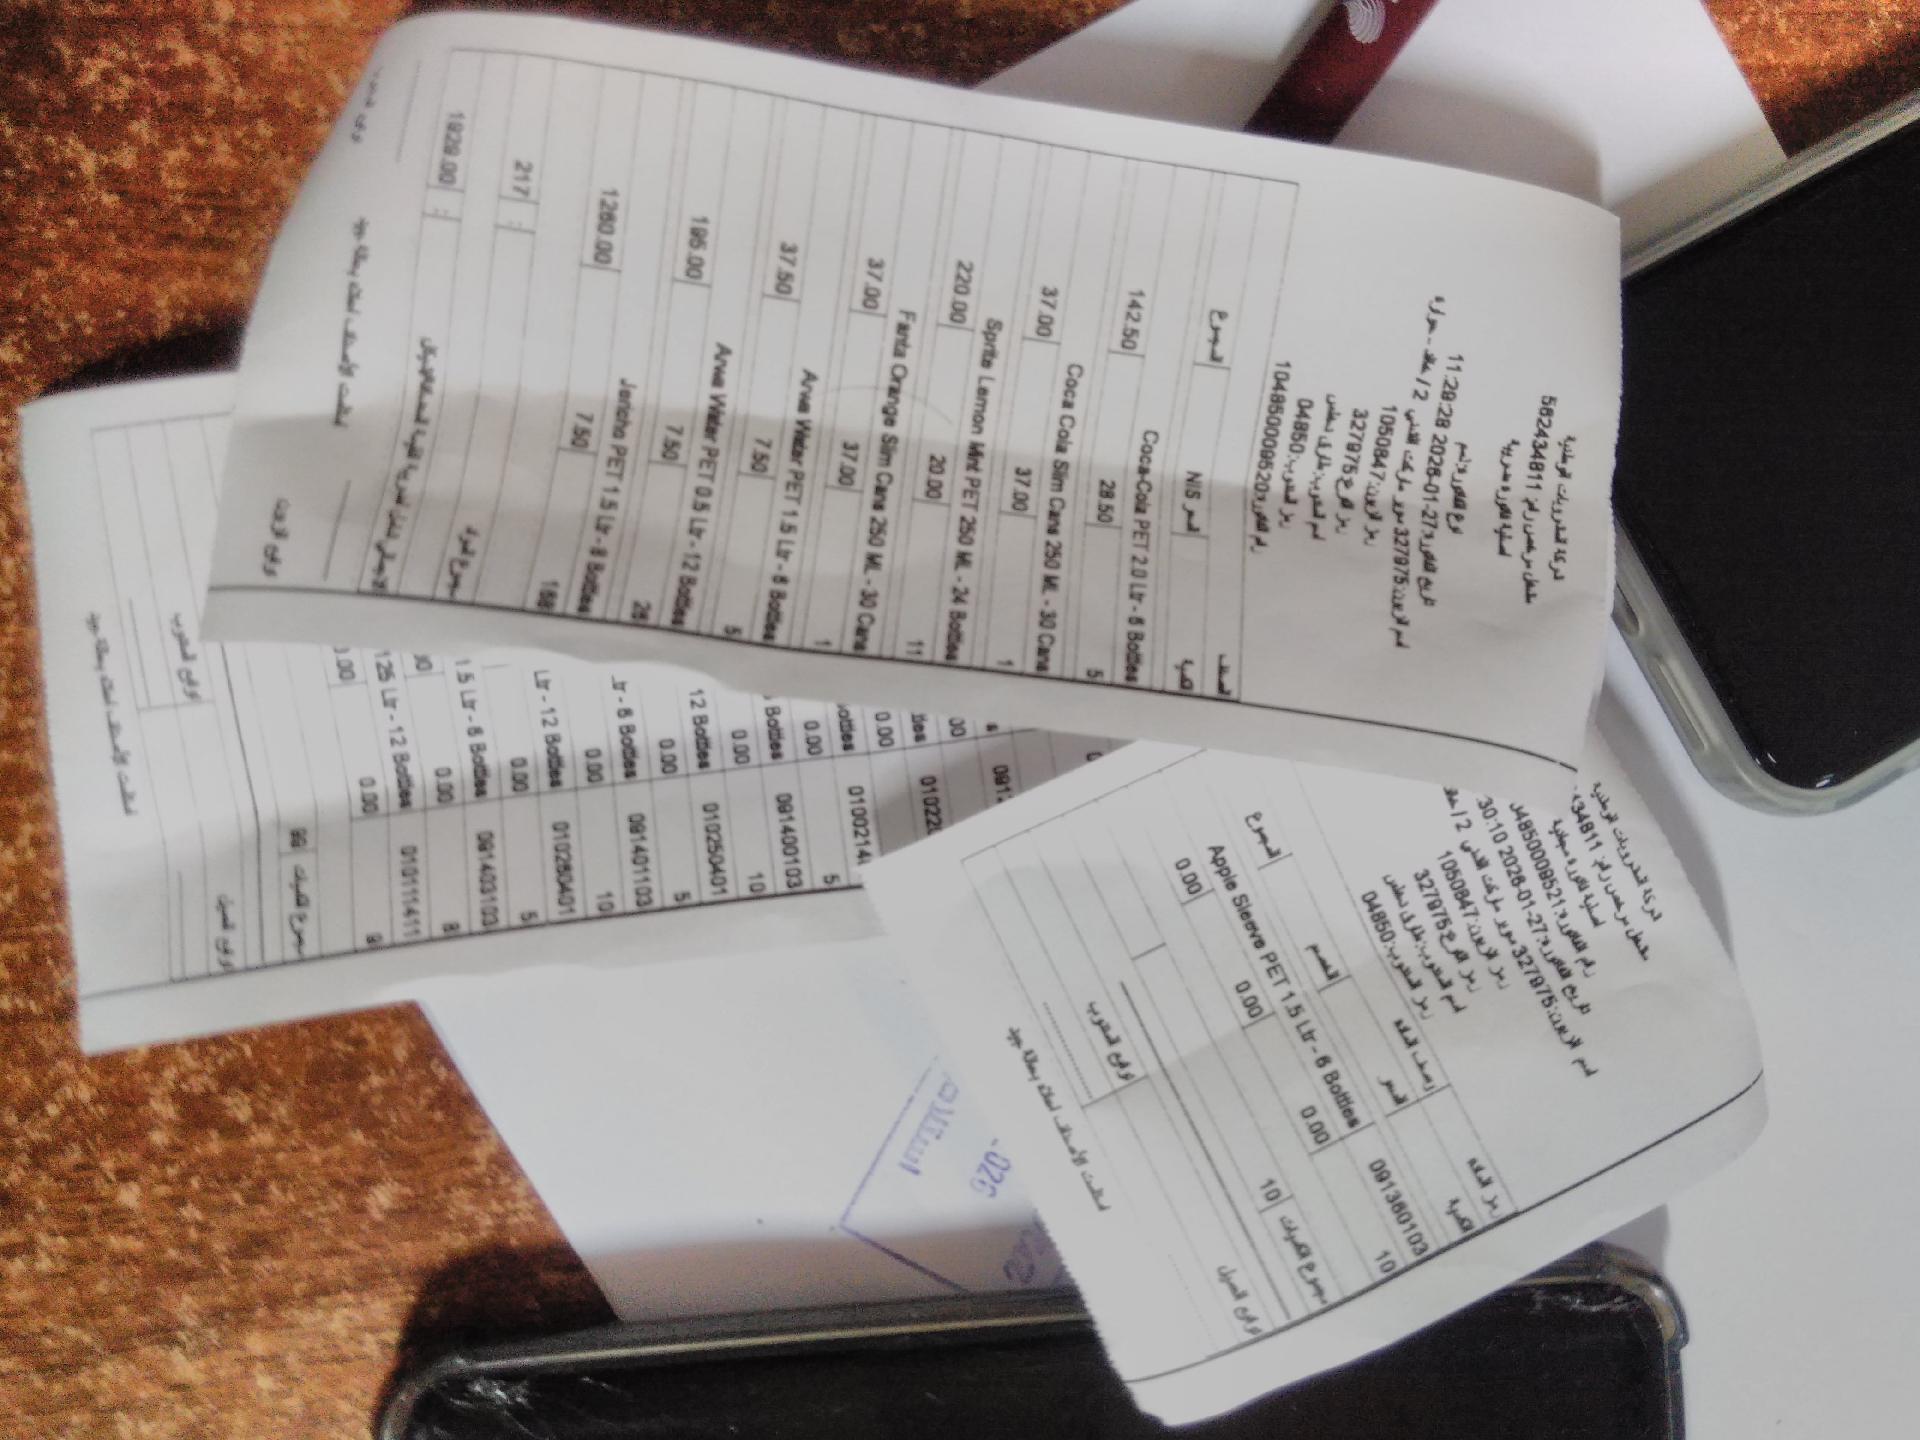 شركة المشروبات الوطنية
مشتغل مرخص رقم: 562434811
اصلية فاتورة ضريبية
نوع الفاتورة: ذمم
تاريخ الفاتورة: 2026-01-27 11:29:28
اسم الزبون: 327975 سوبر ماركت التقني 2 /
رمز الزبون: 1050847
رمز الفرع: 327975
رمز المندوب: 04850
رقم الفاتورة: 104850009520
الصنف
المجموع السعر NIS الكمية
Coca-Cola PET 2.0 Ltr - 6 Bottles
142.50 28.50 5
Coca Cola Slim Cans 250 ML - 30 Cans
37.00 37.00 1
Sprite Lemon Mint PET 250 ML - 24 Bottles
220.00 20.00 11
Fanta Orange Slim Cans 250 ML - 30 Cans
37.00 37.00 1
Arwa Water PET 1.5 Ltr - 6 Bottles
37.50 7.50 5
Arwa Water PET 0.5 Ltr - 12 Bottles
195.00 7.50 26
Jericho PET 1.5 Ltr - 6 Bottles
1260.00 7.50 168
217 : مجموع المواد
1929.00 :
استلمت الأصناف اعلاه بحالة جيدة
توقيع الزبون
0912
010220
00
0100214
0.00 5
Bottles 091400103
0.00 10
12 Bottles 010250401
0.00 5
Ltr - 6 Bottles 091401103
0.00 10
Ltr - 12 Bottles 010260401
0.00 5
1.5 Ltr - 6 Bottles 091403103
0.00 8
.25 Ltr - 12 Bottles 010111411
0.00 0.00 9
مجموع الكميات 99
توقيع المندوب توقيع العميل
استلمت الأصناف اعلاه بحالة جيدة
شركة المشروبات الوطنية
مشتغل مرخص رقم: 434811
رقم الفاتورة: 04850009521
تاريخ الفاتورة: 2026-01-27 30:10
اسم الزبون: 327975 سوبر ماركت التقني 2 /
رمز الزبون: 1050847
رمز الفرع: 327975
رمز المندوب: 04850
رمز المادة وصف المادة
الكمية السعر الخصم المجموع
Apple Sleeve PET 1.5 Ltr - 6 Bottles 091360103
0.00 0.00 0.00 10
مجموع الكميات 10
توقيع المندوب توقيع العميل
استلمت الأصناف اعلاه بحالة جيدة
026